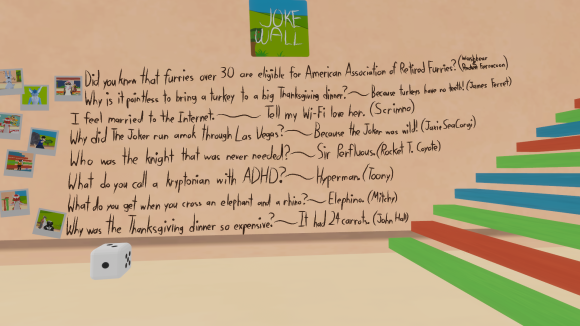 JOKE
WALL
Did you know that furries over 30 are eligible for American Association of Retired Furries?
Why is it pointless to bring a turkey to a big Thanksgiving dinner?~ Because turkeys have no teeth! (James Ferret)
I feel married to the Internet.~ Tell my Wi-Fi love her. (Scrimno)
Why did The Joker run amok through Las Vegas?~ Because the Joker was wild! (JaxSeaCorgi)
Who was the knight that was never needed?~ Sir Perfluous. (Rocket T. Coyote)
What do you call a kryptonian with ADHD?~ Hyperman. (Toony)
What do you get when you cross an elephant and a rhino?~ Elephino. (Mitchy)
Why was the Thanksgiving dinner so expensive?~ It had 24 carrots. (John Hall)